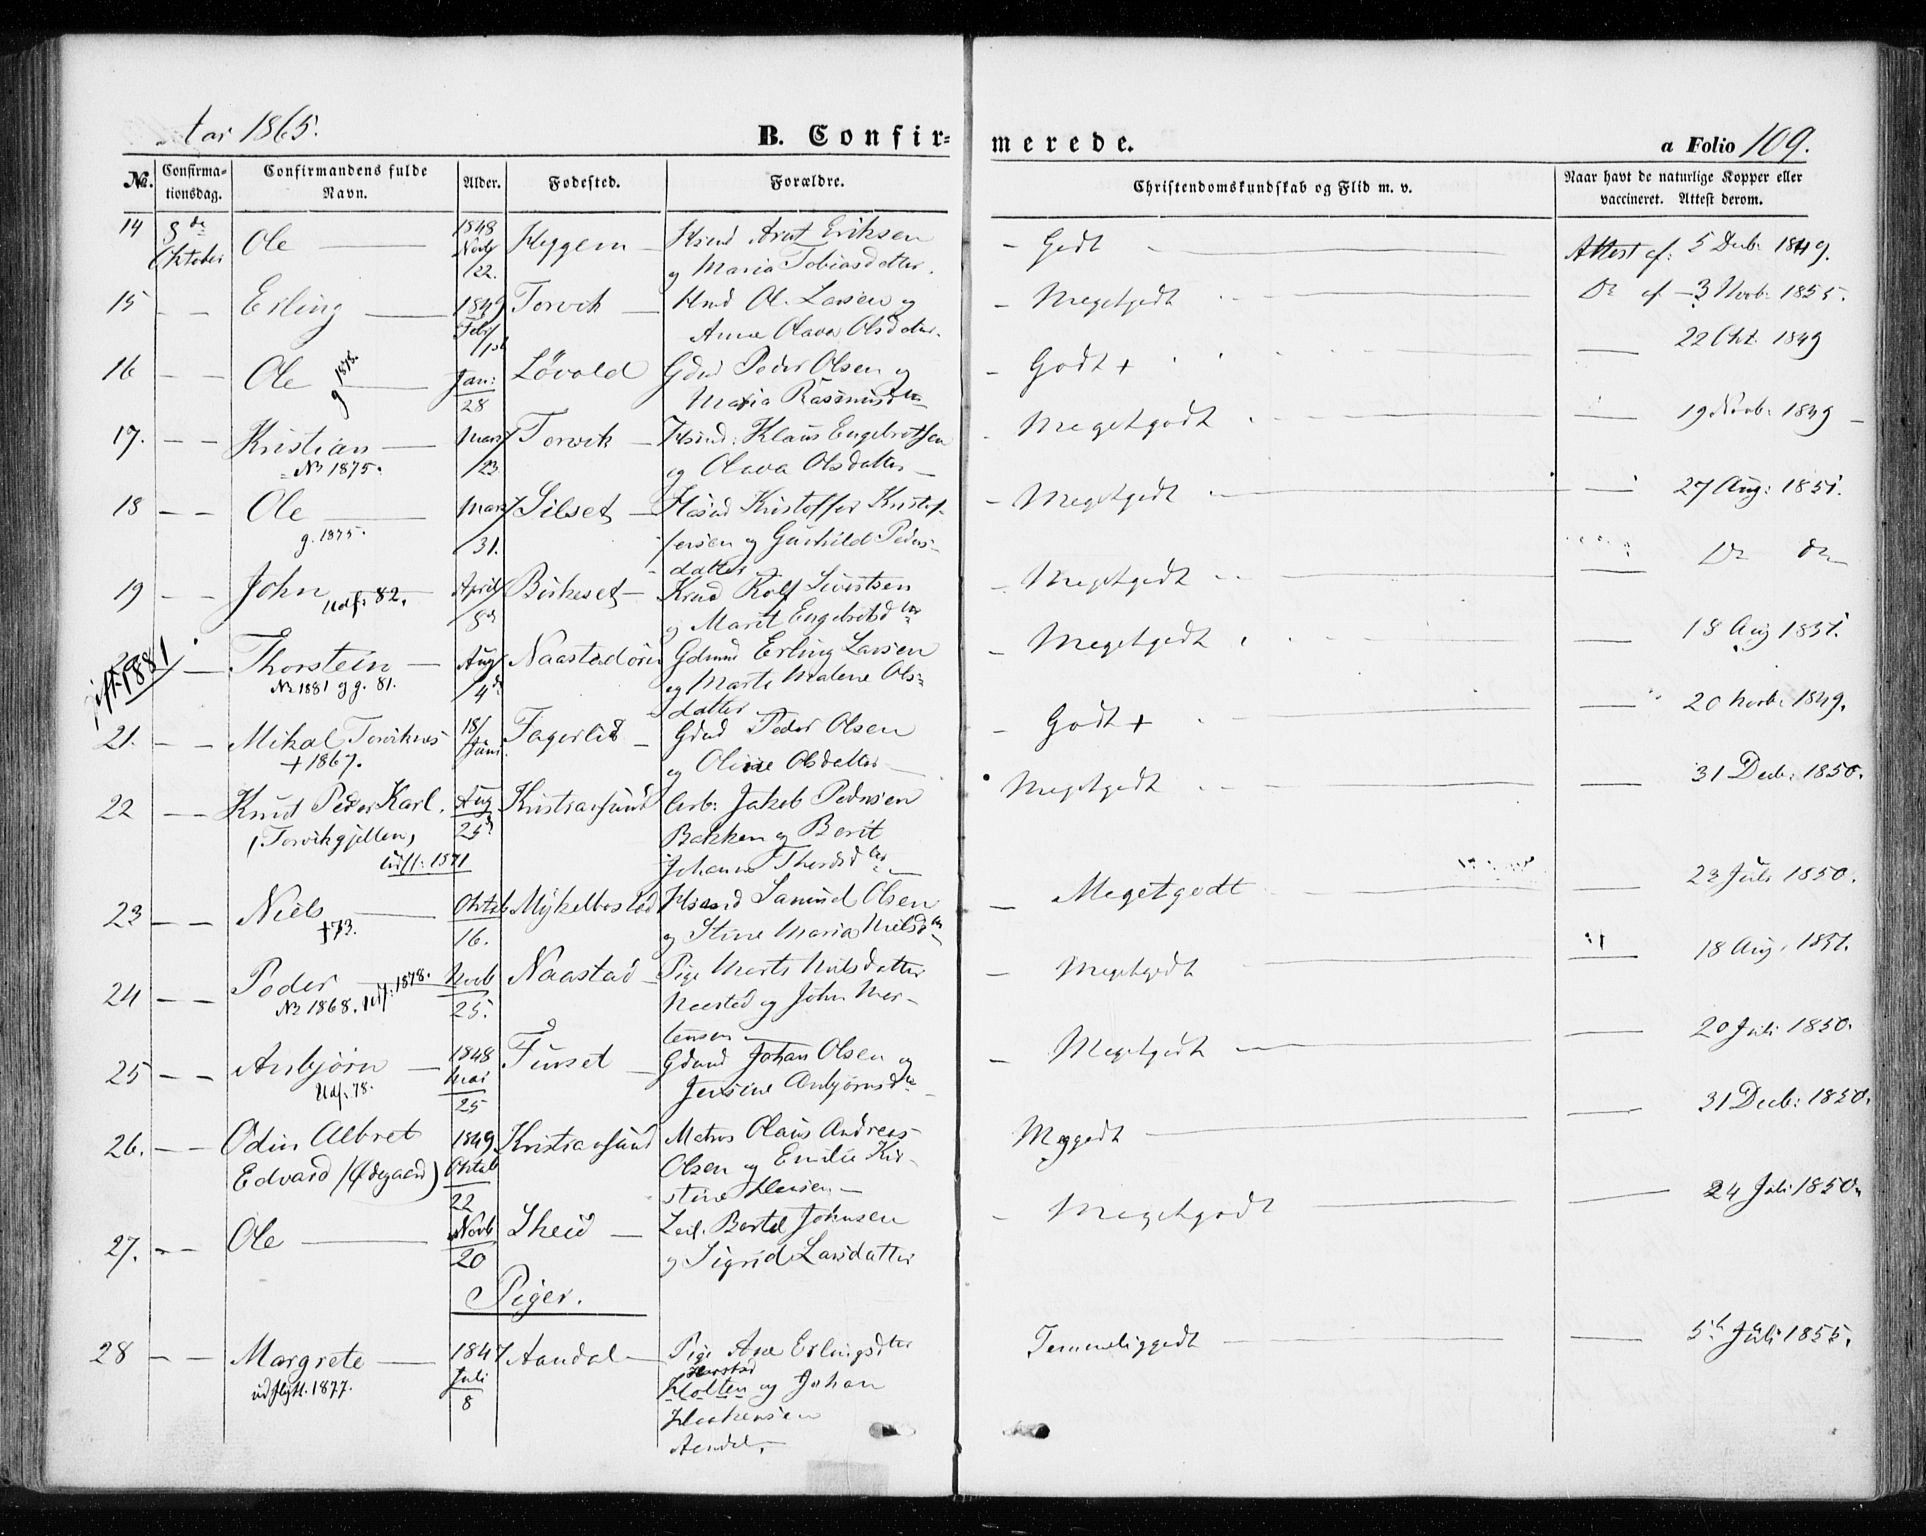 Aar 1865.
B. Confirmerede.
a Folio 109.
No. Confirmationsdag. Confirmandens fulde Navn. Alder. Fødested. Forældre. Christendomskundskab og Flid m. v. Naar havt de naturlige Kopper eller vaccineret. Attest derom.
14 8de Oktober Ole 1848 Novb /22. Heggem Arnt Eriksen og Maria Tobiasdatter. Godt Attest af: 5 Decb: 1849.
15 – – Erling 1849 Feb /1st Torvik Ole Larsen og Anne Olava Olsdatter. Megetgodt Do af 3 Novb: 1855.
16 – – Ole g 1878. Jan: 28 Løvold Gdmd Peder Olsen og Maria Rasmusdtr Godt + 22 Okt 1849
17. – – Kristian No 1875. Mars /23 Torvik Husmd: Klaus Engebretsen og Olava Olsdatter Megetgodt 19 Novb: 1849
18 – – Ole g. 1875. Mars /31. Silset Husmd Kristoffer Kristoffersen og Gunhild Pedersdatter Megetgodt 27 Aug: 1851.
19 – – John Udf: 82. April /8d Birkeset Rolf Sivertsen og Marit Engebretsdtr Megetgodt Do do
gift 1881
– Thorstein No 1881 og g. 81. Aug /4d Naastadøren Gdmd Erling Larsen og Marte Malene Olsdatter Megetgodt 18 Aug 1851.
21. – – Mikal Torviknes + 1867. 18/ Juni Fagerlid Gdmd Peder Olsen og Oline Olsdatter Godt + 20 Novb: 1849.
22 – – Knut Peder Karl. (Torvikgjellen) Udfl: 1871 Aug 25d Kristiansund Arb: Jakob Pedersen Bakken og Berit Johanna Thordsdtr Megetgodt 31 Decb: 1850.
23 – – Niels †73. Oktob 16. Mykelbostad Husmd Samuel Olsen og Stine Maria Nielsdtr Megetgodt 23 Juli 1850.
24 – – Peder No 1868. Udf: 1878. Novb 25. Naastad Pige Marte Nilsdatter Naastad og John Mortensen Megetgodt 18 Aug. 1851.
25 – – Anbjørn Udf: 78. 1848 Mai 25 Furset Gdmd Johan Olsen og Jensine Anbjørnsdtr Megetgodt 20 Juli 1850.
26. – – Odin Albret Edvard (Ødegaard) 1849 Oktob 22 Kristiansund Matros Olaus Andreas Olsen og Emilie Kirstine Hansen Meggodt 31 Decb: 1850.
27. – – Ole Novb 20 Skeid Bertel Johnsen og Sigrid Larsdatter Megetgodt 24 Juli 1850.
Piger.
28 – – Margrete udflytt. 1877. 1847 Juli 8 Aandal Pige Ane Erlingsdtr Harstad Holten og Johan Haakensen Aandal. Temmeliggodt 5te Juli 1855.